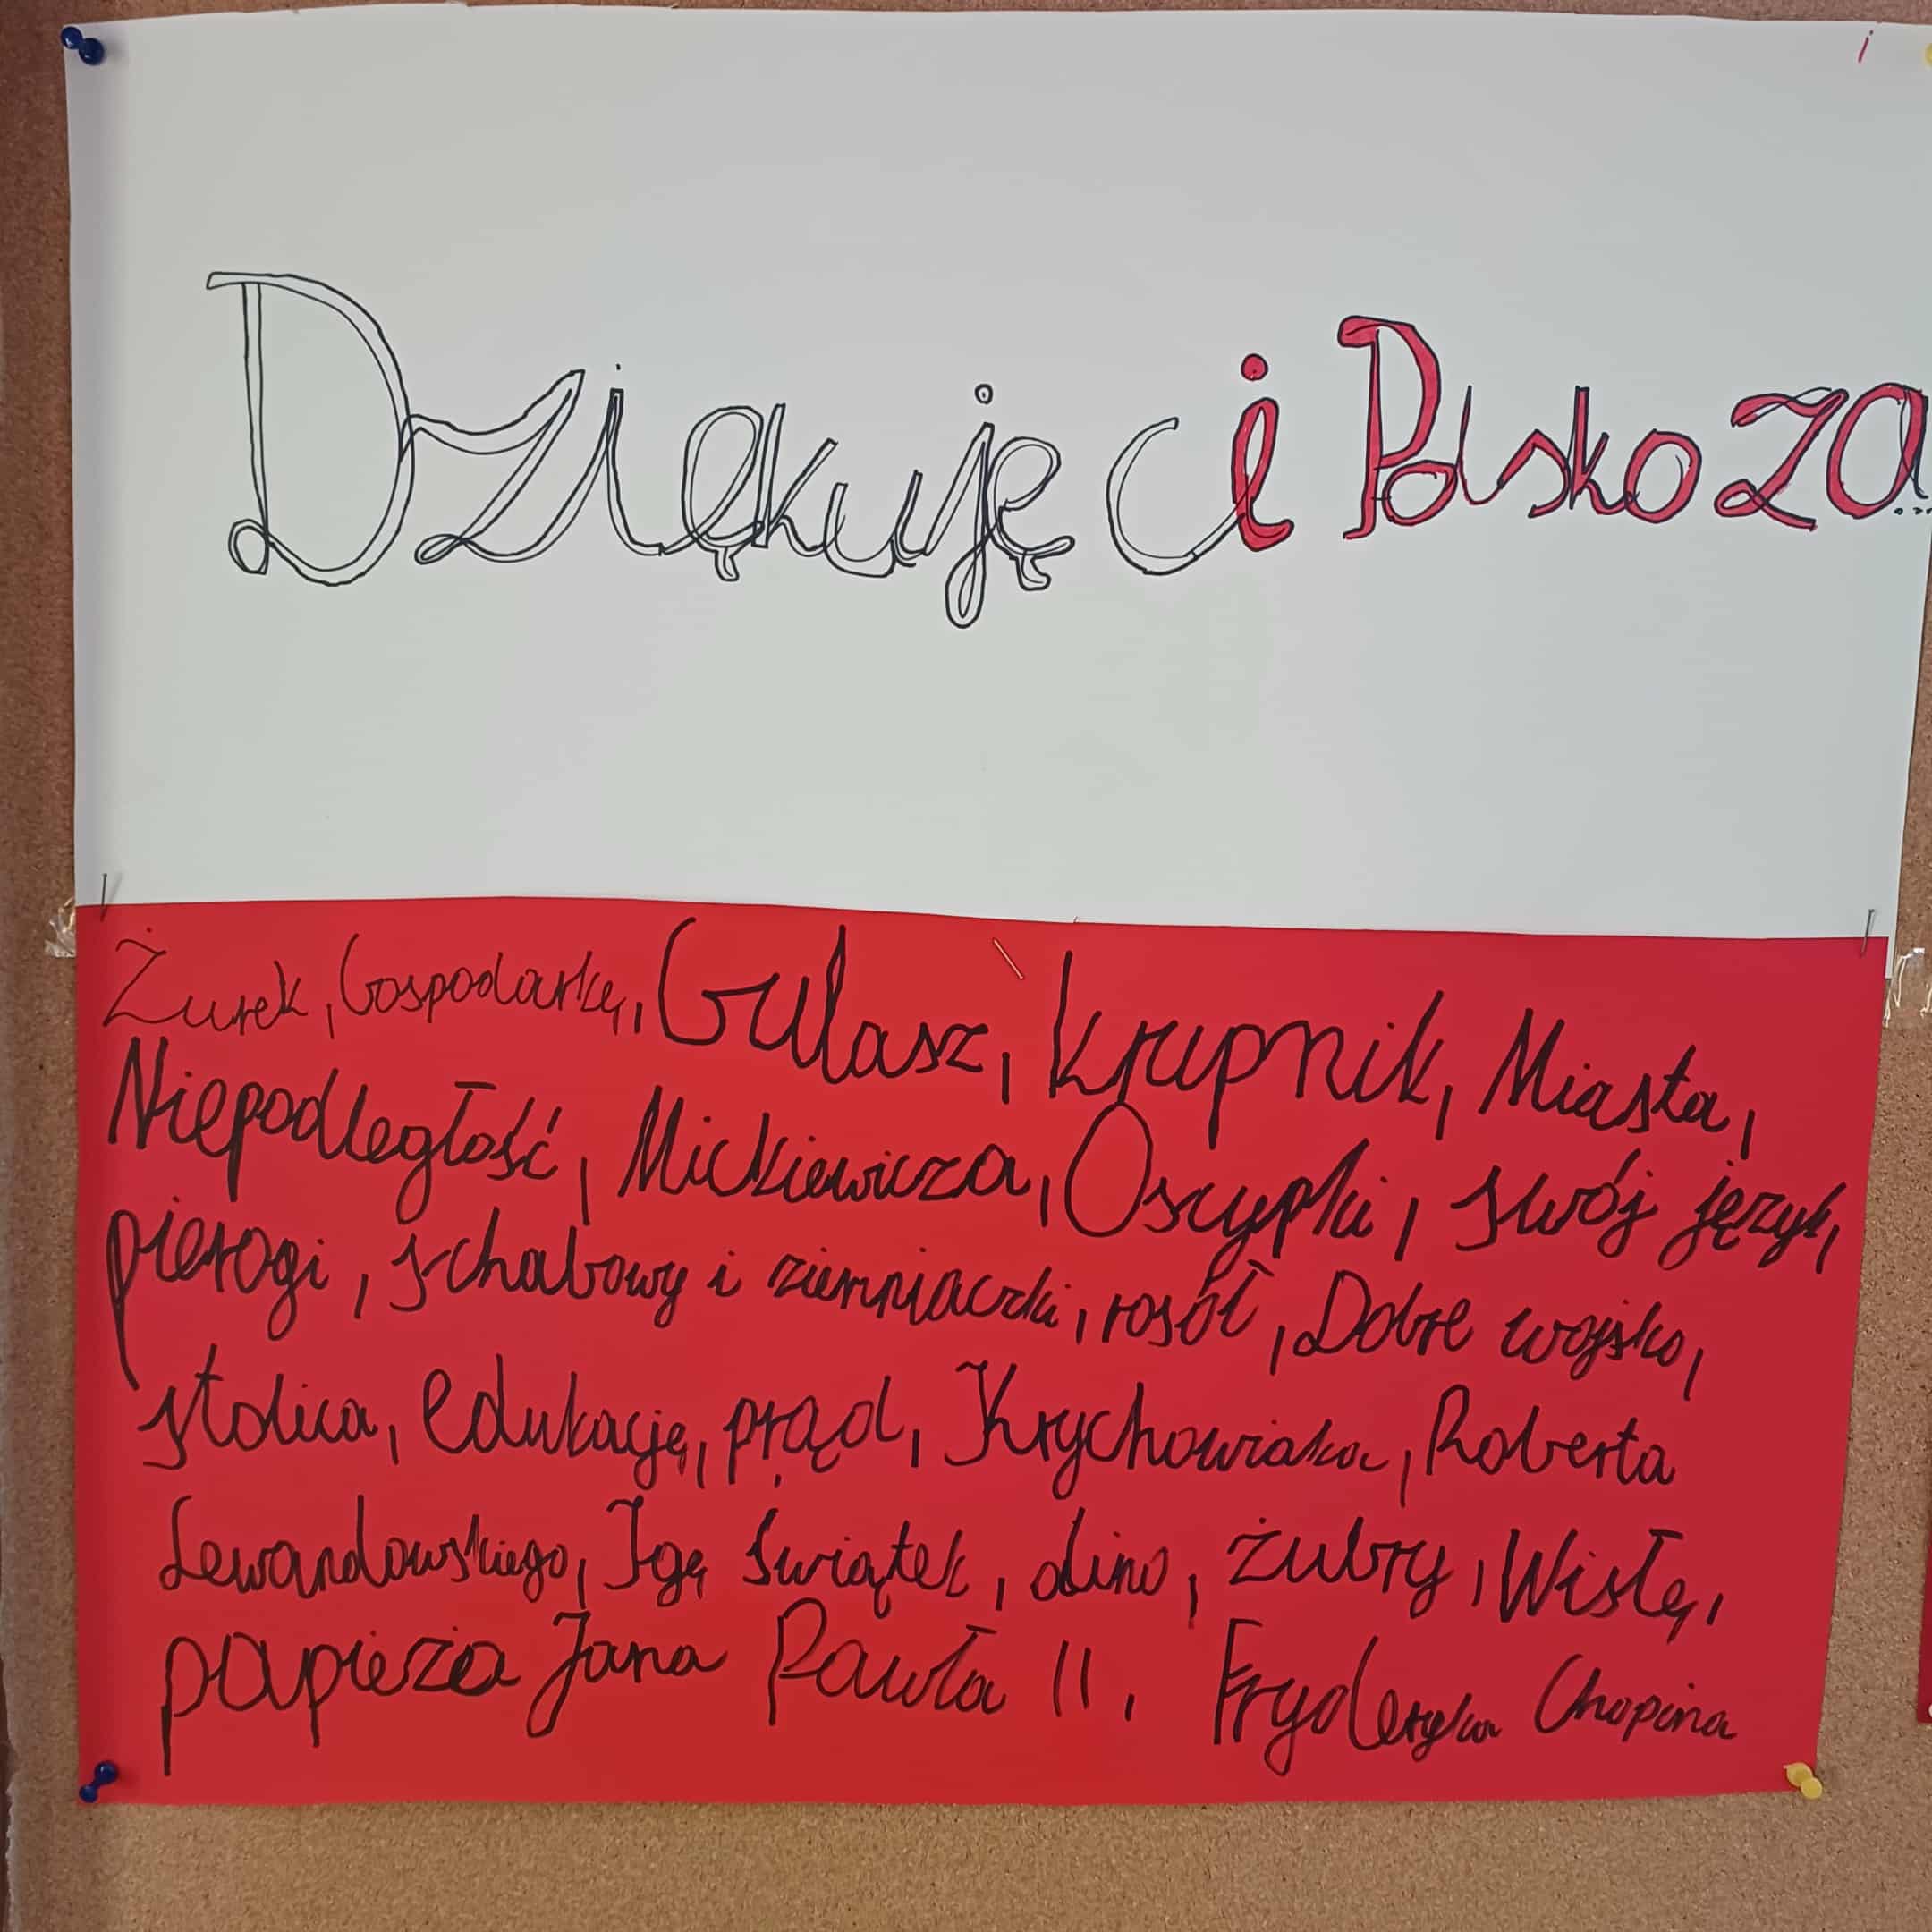 i
Dziękuję ci Polsko za...
Żurek, Gospodarkę, Gulasz, krupnik, Miasta,
Niepodległość, Mickiewicza, Oscypki, swój język,
pierogi, schabowy i ziemniaczki, rosół, Dobre wojsko,
stolica, edukację, prąd, Krychowiaka, Roberta
Lewandowskiego, Igę Świątek, dino, żubry, Wisłę,
papieża Jana Pawła II, Fryderyka Chopina